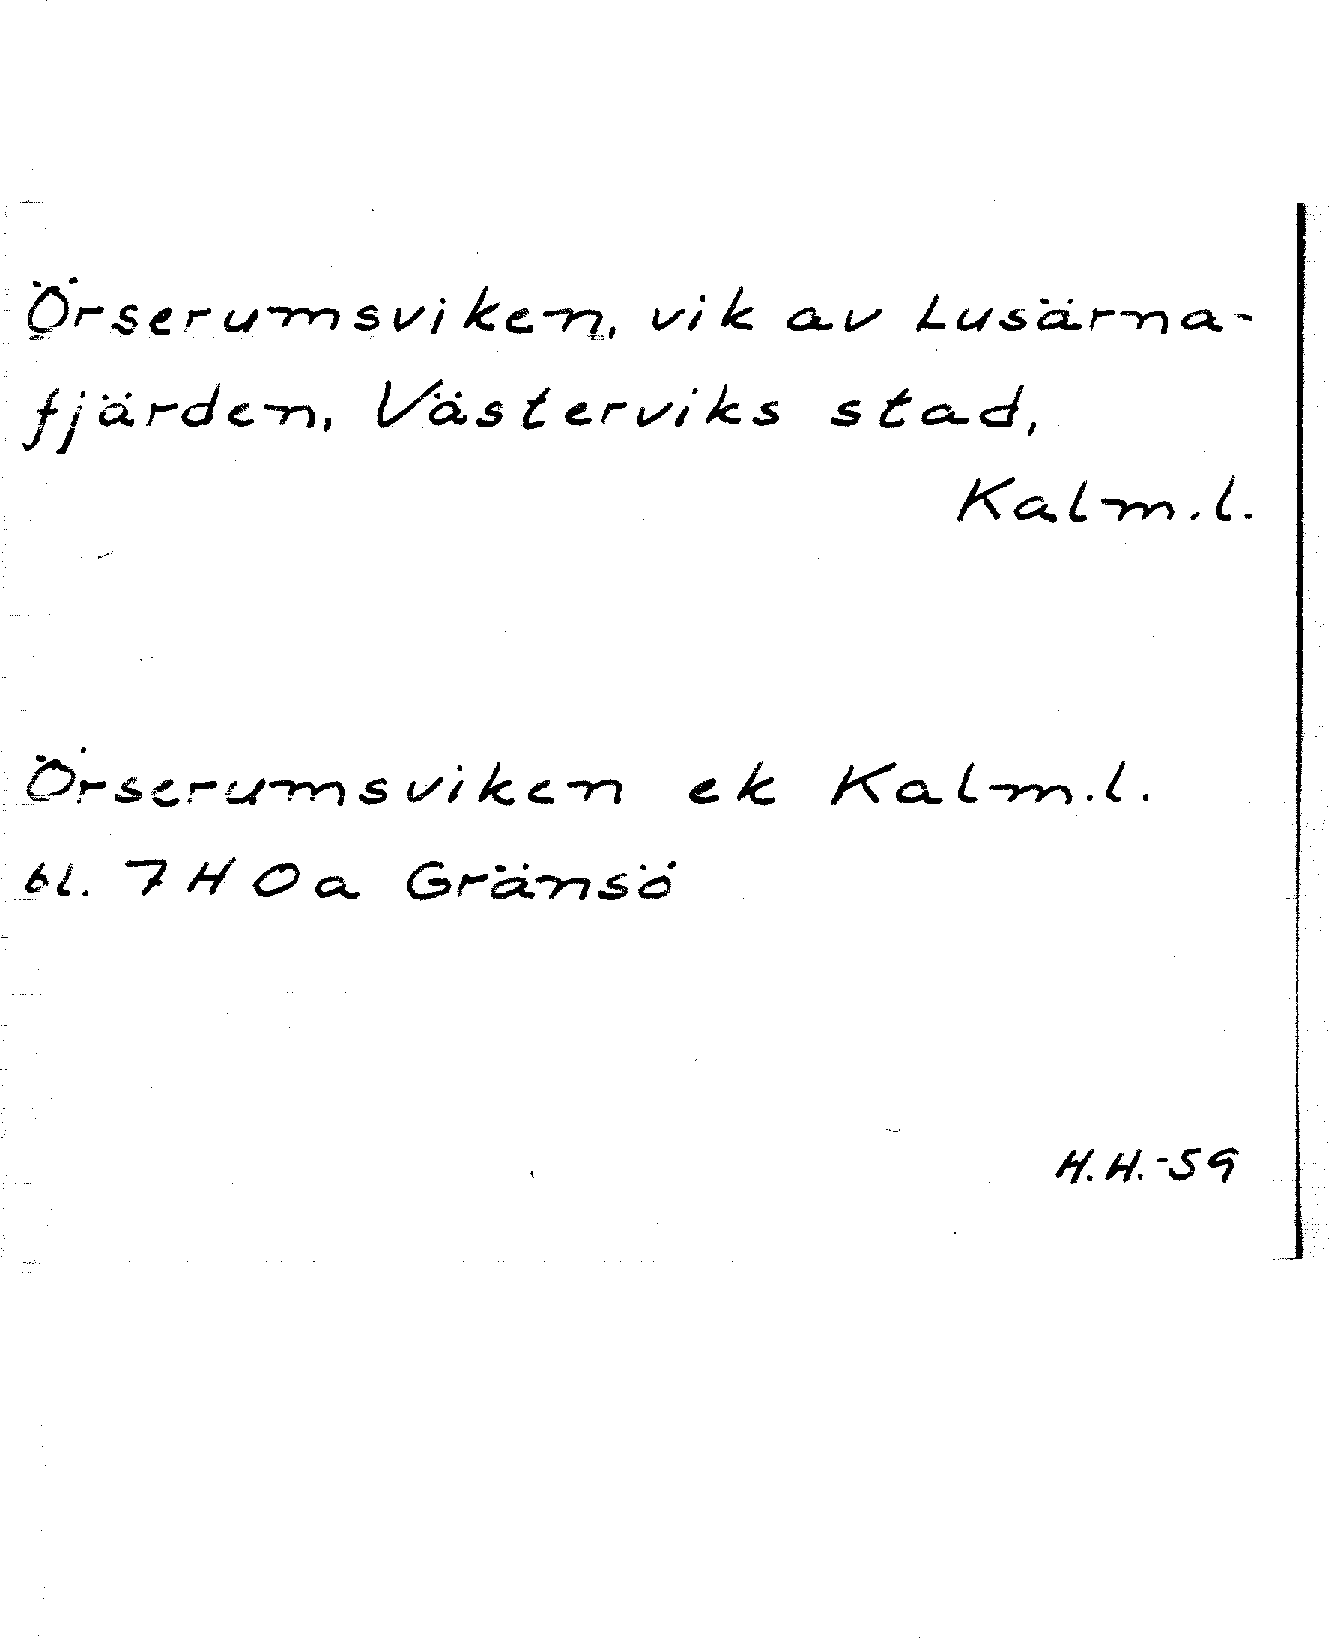 Örserumsviken, vik av Lusärna-
fjärden, Västerviks stad,
Kalm.l.
Örserumsviken ek Kalm.l.
bl. 7 H 0 a Gränsö
H.H.-59